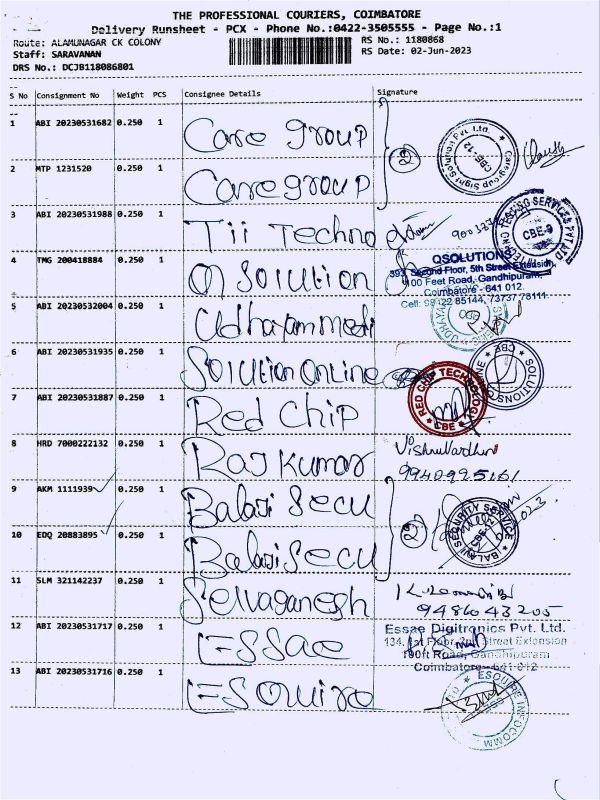 THE PROFESSIONAL COURIERS, COIMBATORE
Delivery Runsheet - PCX - Phone No.:0422-3505555 - Page No.:1
Route: ALAMUNAGAR CK COLONY RS No.: 1180868
Staff: SARAVANAN RS Date: 02-Jun-2023
DRS No.: DCJB118086801
S No Consignment No Weight PCS Consignee Details Signature
1 ABI 20230531682 0.250 1 Care group
Caregroup Sight Solution Pvt. Ltd. CBE-12
2 MTP 1231520 0.250 1 Caregroup
3 ABI 20230531988 0.250 1 Tii Techno
TESTING SERVICES PVT LTD CBE-9
4 TMG 200418884 0.250 1 Q Solution
QSOLUTIONS
393, Second Floor, 5th Street Extension,
100 Feet Road, Gandhipuram,
Coimbatore - 641 012.
Cell: 98122 85144, 73737 78111
5 ABI 20230532004 0.250 1 Udhayam medi
6 ABI 20230531935 0.250 1 Solution Online
SOLUTIONS CBE
7 ABI 20230531887 0.250 1 Red Chip
RED CHIP TECHNOLOGY CBE
8 HRD 7000222132 0.250 1 Raj Kumar
Vishnuvardhan
9940995161
9 AKM 1111939 0.250 1 Balaji Secu
BALAJI SECURITY SERVICE CBE
10 EDQ 20883895 0.250 1 Balaji Secu
11 SLM 321142237 0.250 1 Selvaganesh
9486043205
12 ABI 20230531717 0.250 1 Essae
Essae Digitronics Pvt. Ltd.
134, 1st Floor, 2nd Street Extension
100ft Road, Gandhipuram
Coimbatore - 641 012
13 ABI 20230531716 0.250 1 Esquire
ESQUIRE INFOCOMM